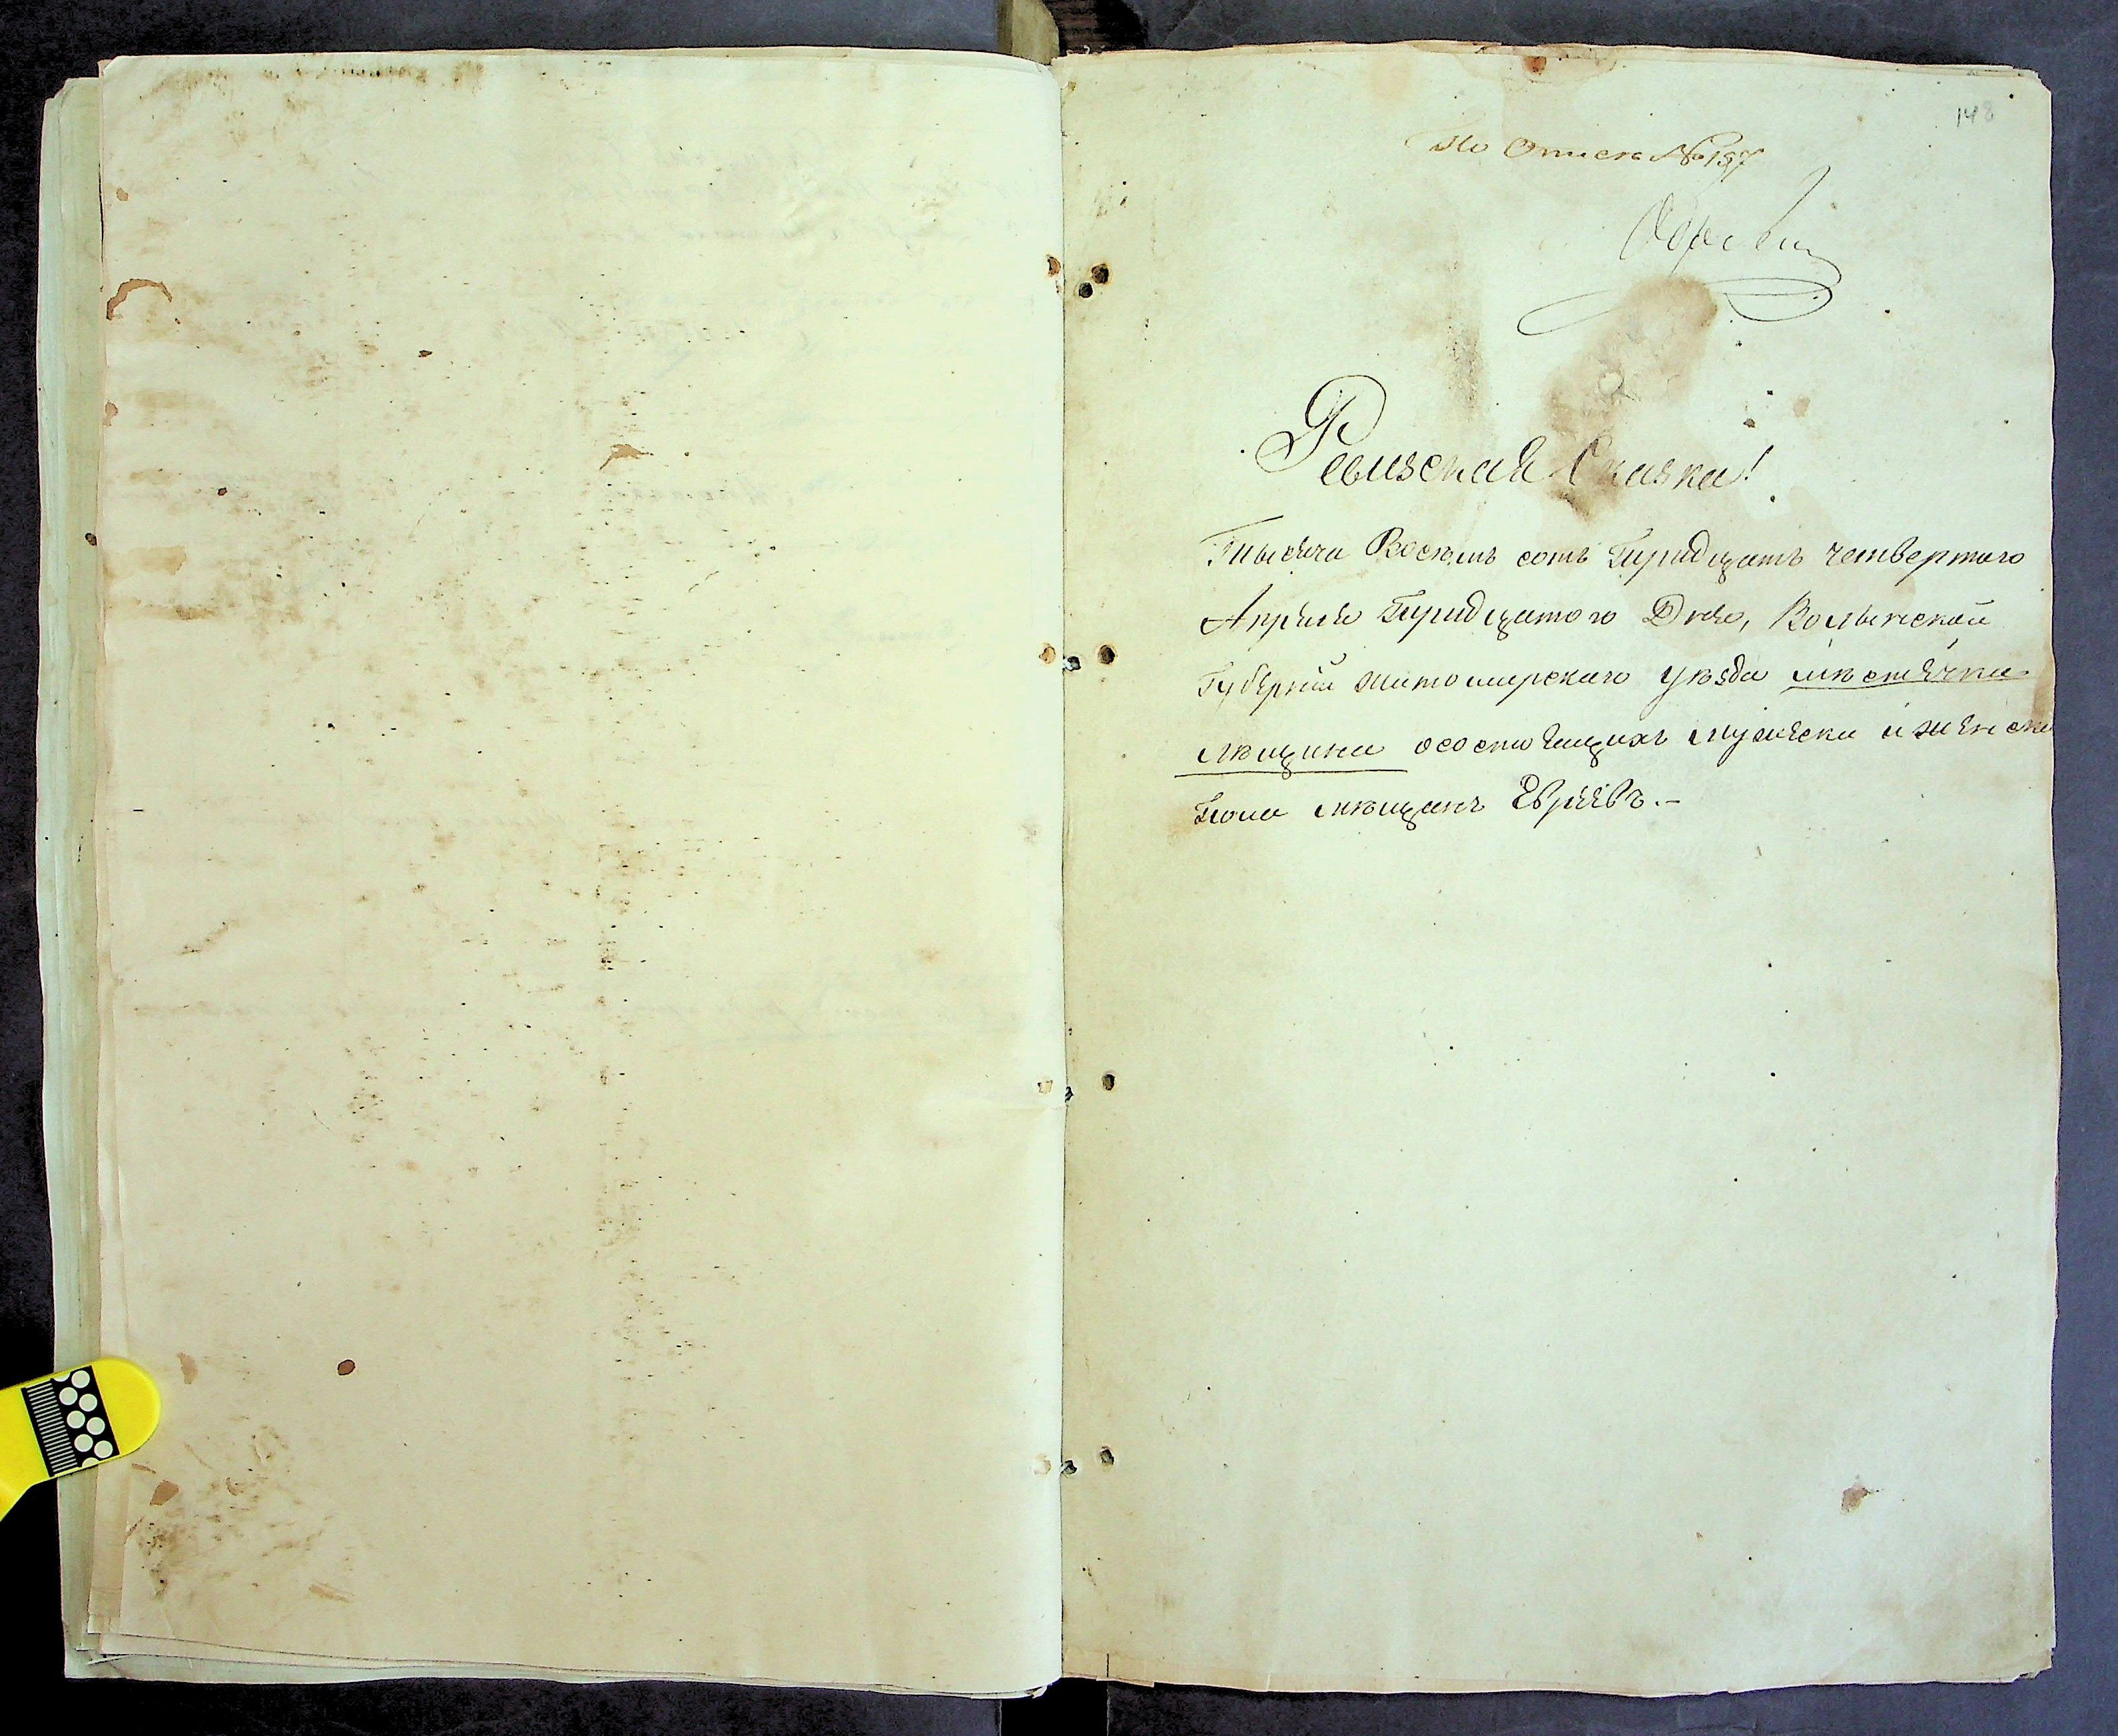 148
По Описи № 197
Ревизская Сказка!
Тысяча Восемь сотъ Тридцать четвертого
Апреля Тридцатого Дня, Волынской
Губернии Житомирского уѣзда мѣстечка
Лѣщина о состоящихъ мужеска и женска
Пола мѣщанъ Евреевъ.-